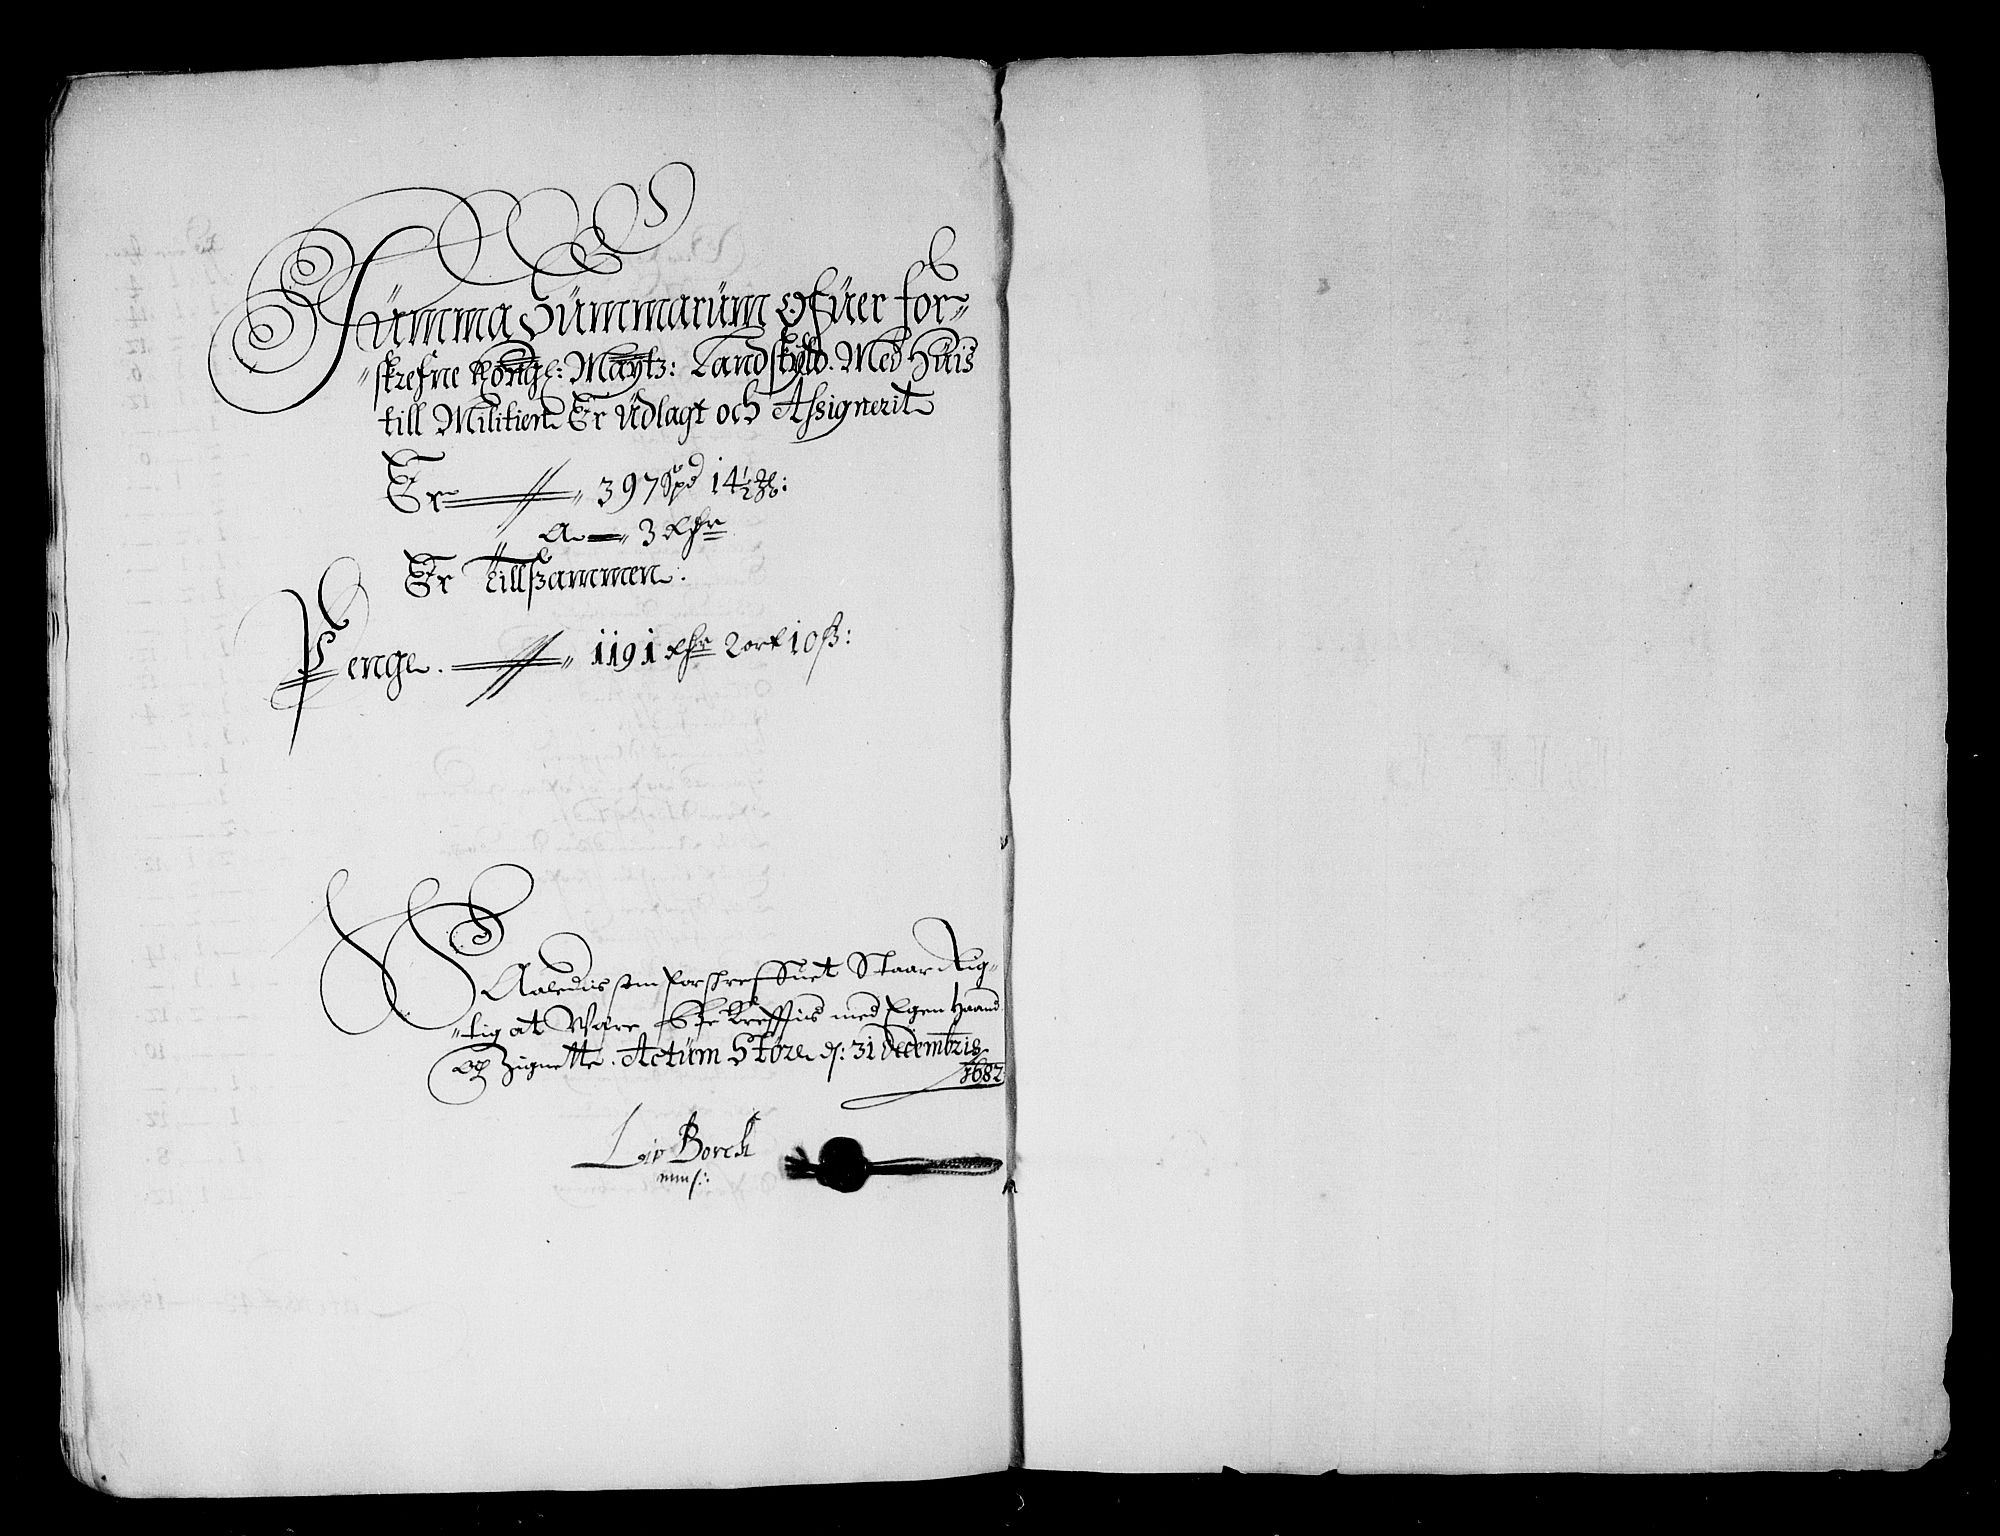 Summa Summarum Ofuer for-
skrefne Kongl: Maytz: Landskyld. Med Huis
till Militien Er Udlagt och Assignerit
Er 397 Spd 14½ ℔:
A 3 Rdr
Er Tillsammen:
Penge. 1191 Rdr 2 ort 10 ß:
Aaledis som forschreffuet Staar Rig-
tig at Være bekrefftis med Egen Haand
og Zignette. Actum Støre d: 31 Decembris
1682
Borch